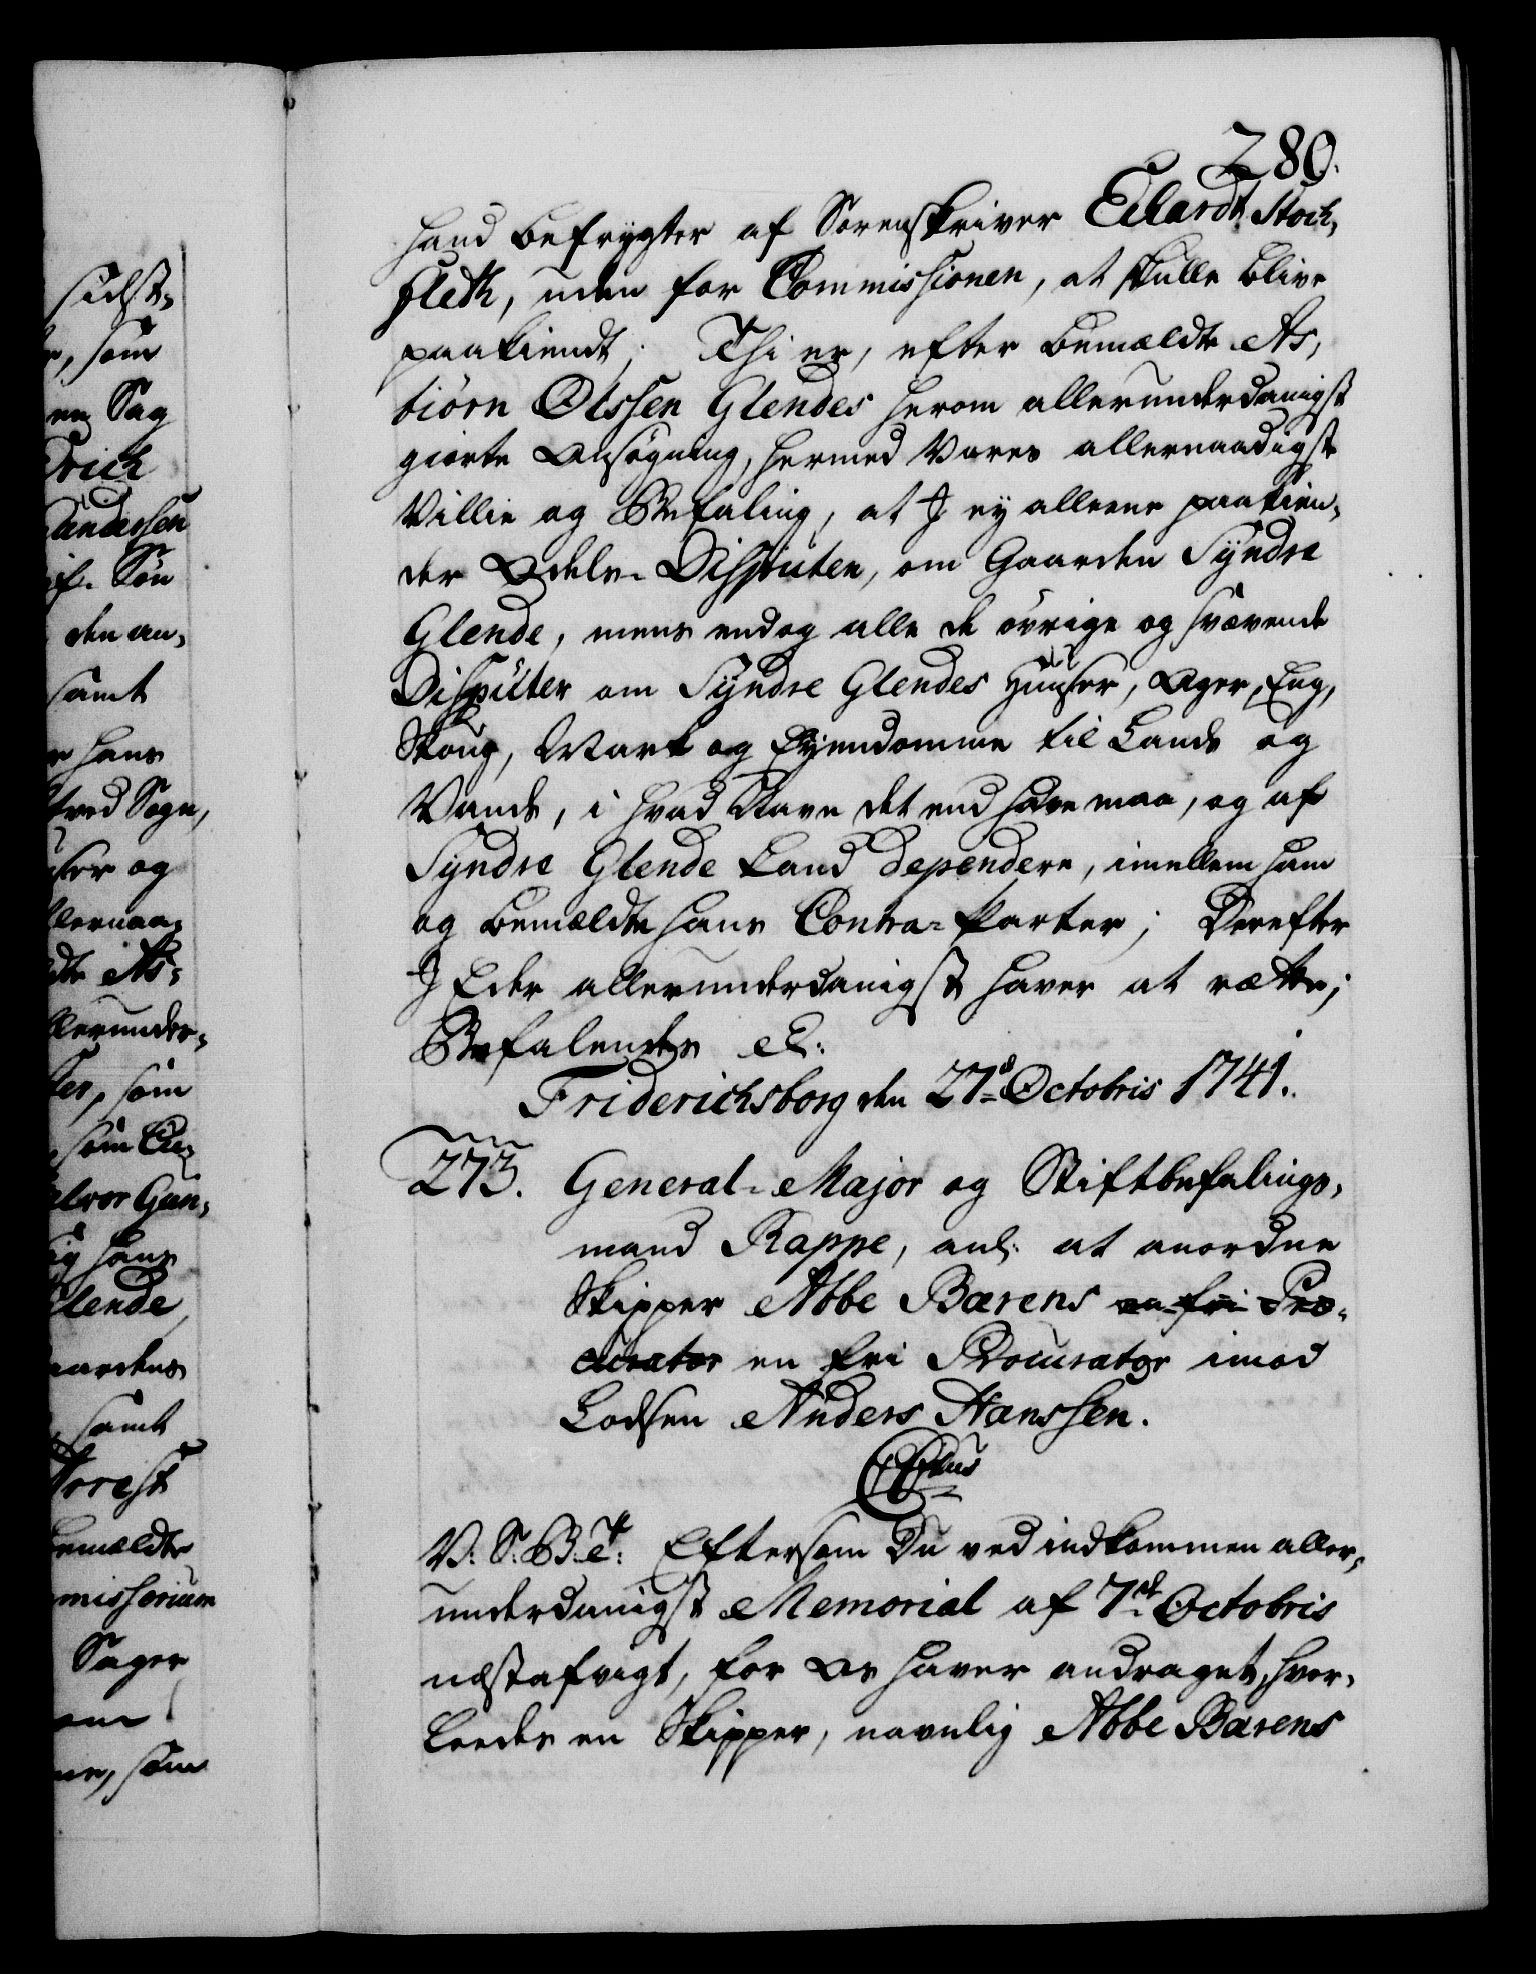 280.
hand befrygter af Sorenskriver Eilardt Stoch,
fleth, uden for Commissionen, at skulle blive
paakiendt; Thi er, efter bemældte As,
biörn Olssen Glendes herom allerunderdanigst
giorte Ansøgning, hermed Vores allernaadigste
Villie og Befaling, at I ey alleene paakien,
der Odels-Disputen, om Gaarden Syndre
Glende, mens endog alle de øvrige og svævende
Disputer om Syndre Glendes Huuser, Ager, Eng,
Skoug, Mark og Eyendomme til Lands og
Vands, i hvad Navn det end have maa, og af
Syndre Glende Land dependere, imellem ham
og bemældte hans Contra-Parter; Derefter
I Eder allerunderdanigst haver at rette;
Befalendes &:
Friderichsborg den 27de Octobris 1741.
273. General-Major og Stiftbefalings,
mand Rappe, anl: at anordne
Skipper Abbe Barens en fri Pro-
curator en fri Procurator imod
Lodsen Anders Hanssen.
CStus
V: S: B: T: Eftersom Du ved indkommen aller,
underdanigst Memorial af 7de Octobris
næstafvigt, for Os haver andraget, hvor,
leedes en Skipper, navnlig Abbe Barens
sidst-
som
Sag
Drich
Gandersen
Søn
den an,
samt
hans
Sogn,
og
allernaa-
As-
allerunder-
som
som
Halvor Gun,
hans
Glende
Gaardens
samt
bemældte
Sager
som